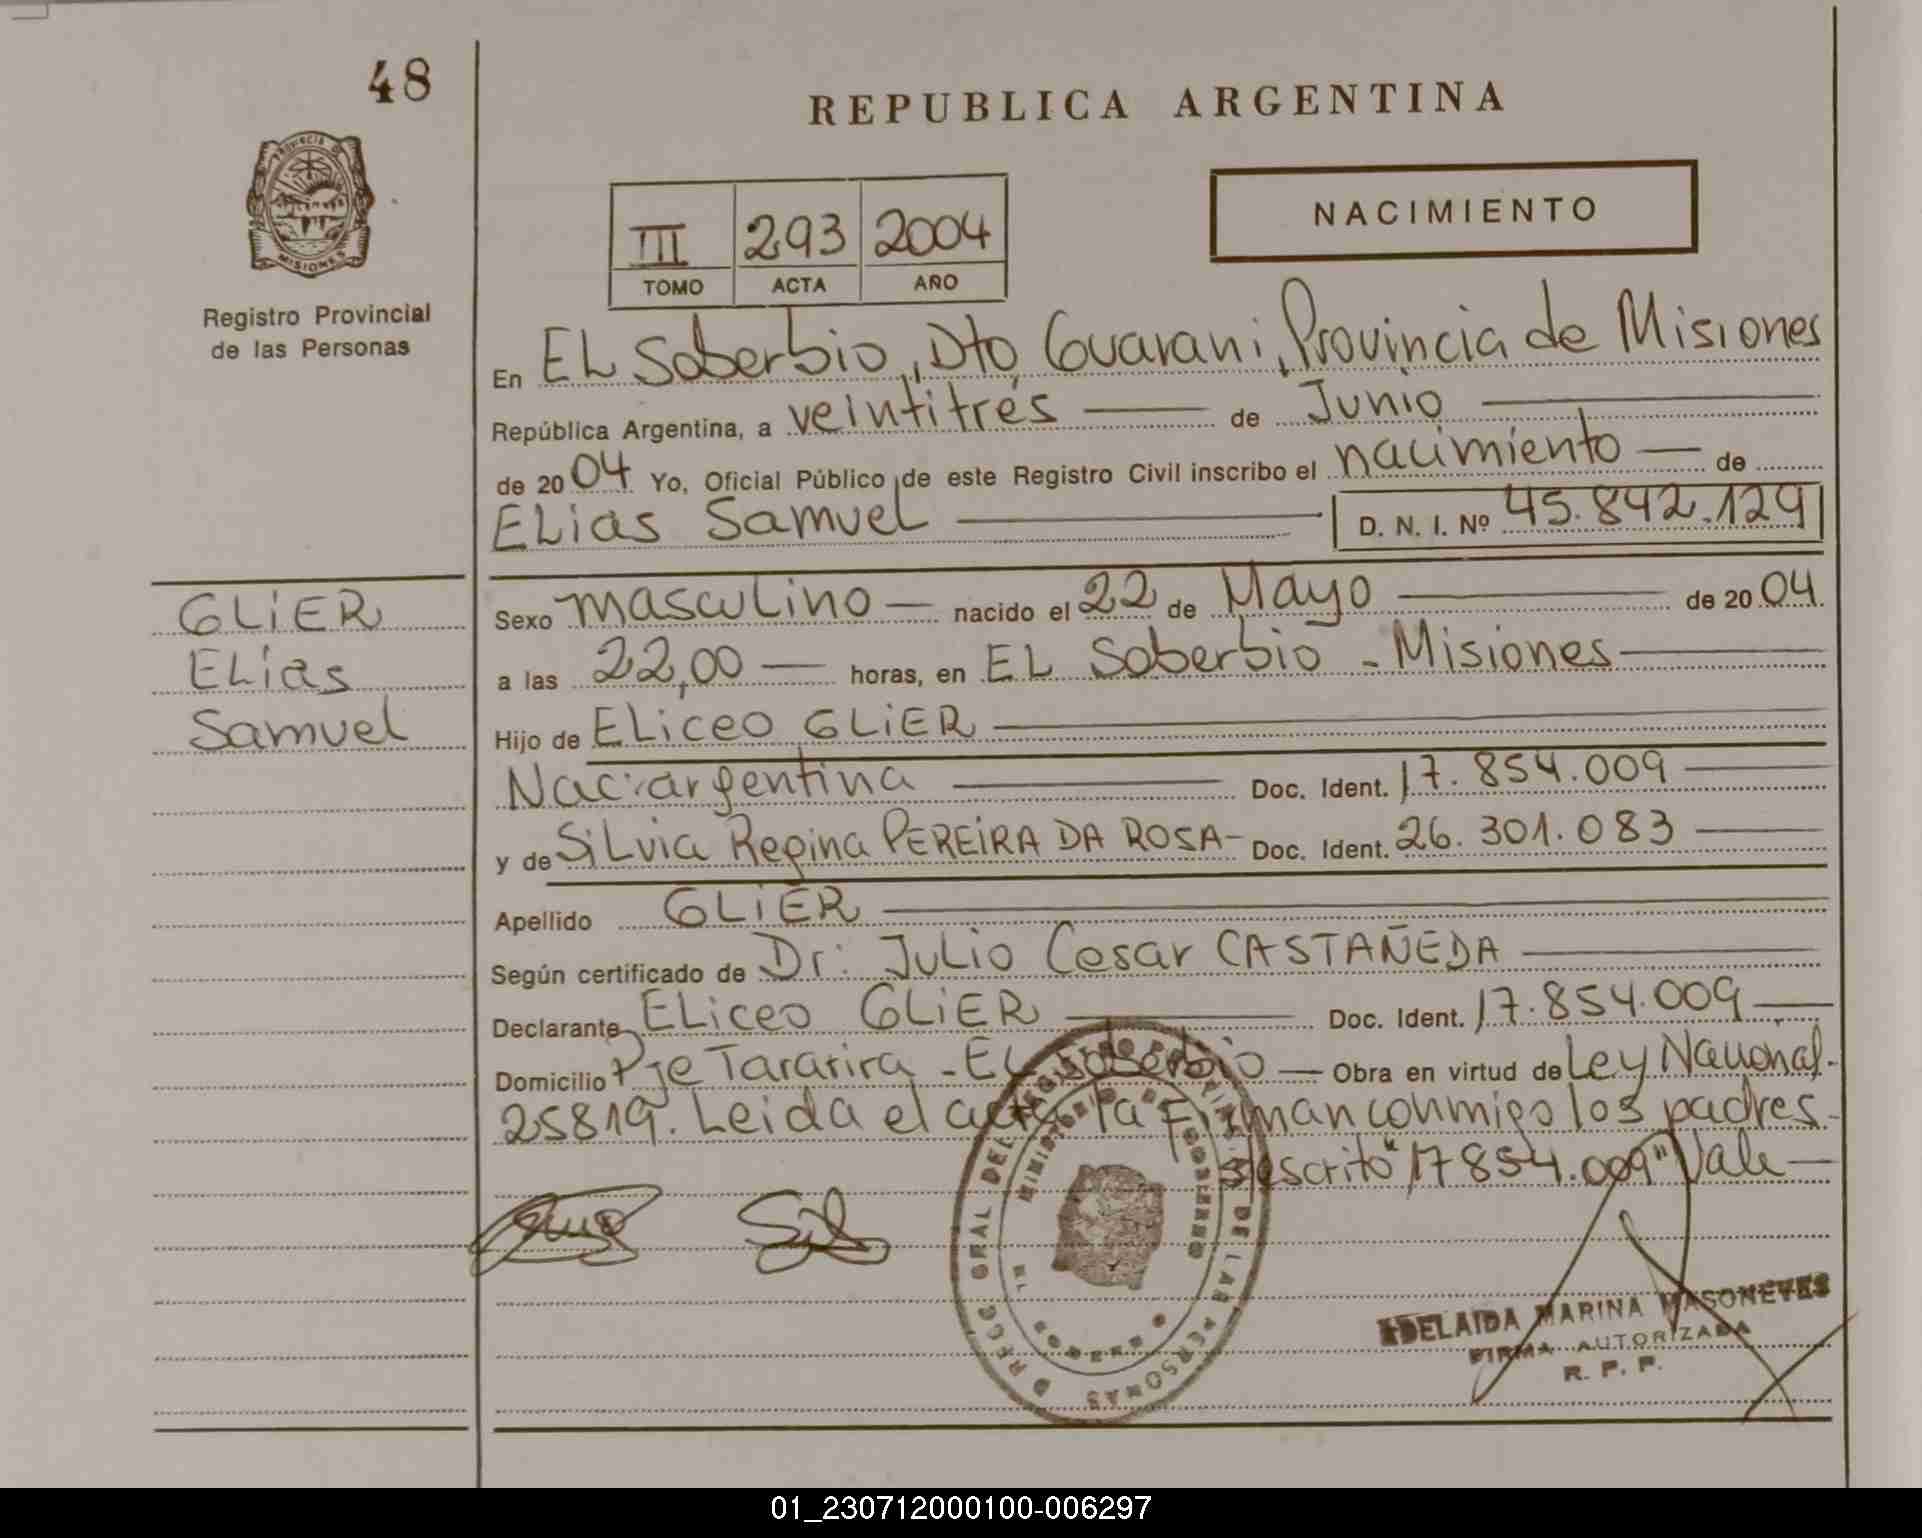 48
REPUBLICA ARGENTINA
PROVINCIA DE
MISIONES
Registro Provincial
de las Personas
III 293 2004
TOMO ACTA AÑO
NACIMIENTO
En EL Soberbio, Dto Guarani, Provincia de Misiones
República Argentina, a veintitrés de Junio
de 2004 Yo, Oficial Público de este Registro Civil inscribo el nacimiento de
ELias SamueL D. N. I. Nº 45.842.129
GLiER
ELias
Samuel
Sexo mascuLino nacido el 22 de Mayo de 2004
a las 22,00 horas, en EL Soberbio - Misiones
Hijo de ELiceo GLiER
Nac: argentina Doc. Ident. 17.854.009
y de SiLvia Regina PEREiRA DA ROSA- Doc. Ident. 26.301.083
Apellido GLiER
Según certificado de Dr: JuLio Cesar CASTAÑEDA
Declarante ELiceo GLiER Doc. Ident. 17.854.009
Domicilio Pje Tararira - EL Soberbio Obra en virtud de Ley Nacional-
25819. Leida el acta la Firman conmigo los padres-
"17854.009" Vale
DIREC. GRAL. DEL REGISTRO PROVINCIAL DE LAS PERSONAS
MINISTERIO DE GOBIERNO
EL SOBERBIO
ADELAIDA MARINA MASONEVES
FIRMA AUTORIZADA
R. P. P.
01_230712000100-006297